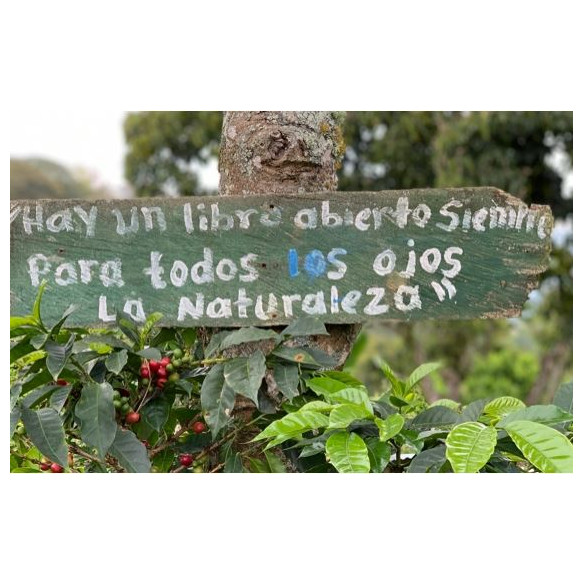 "Hay un libro abierto siempre
para todos los ojos
La Naturaleza"